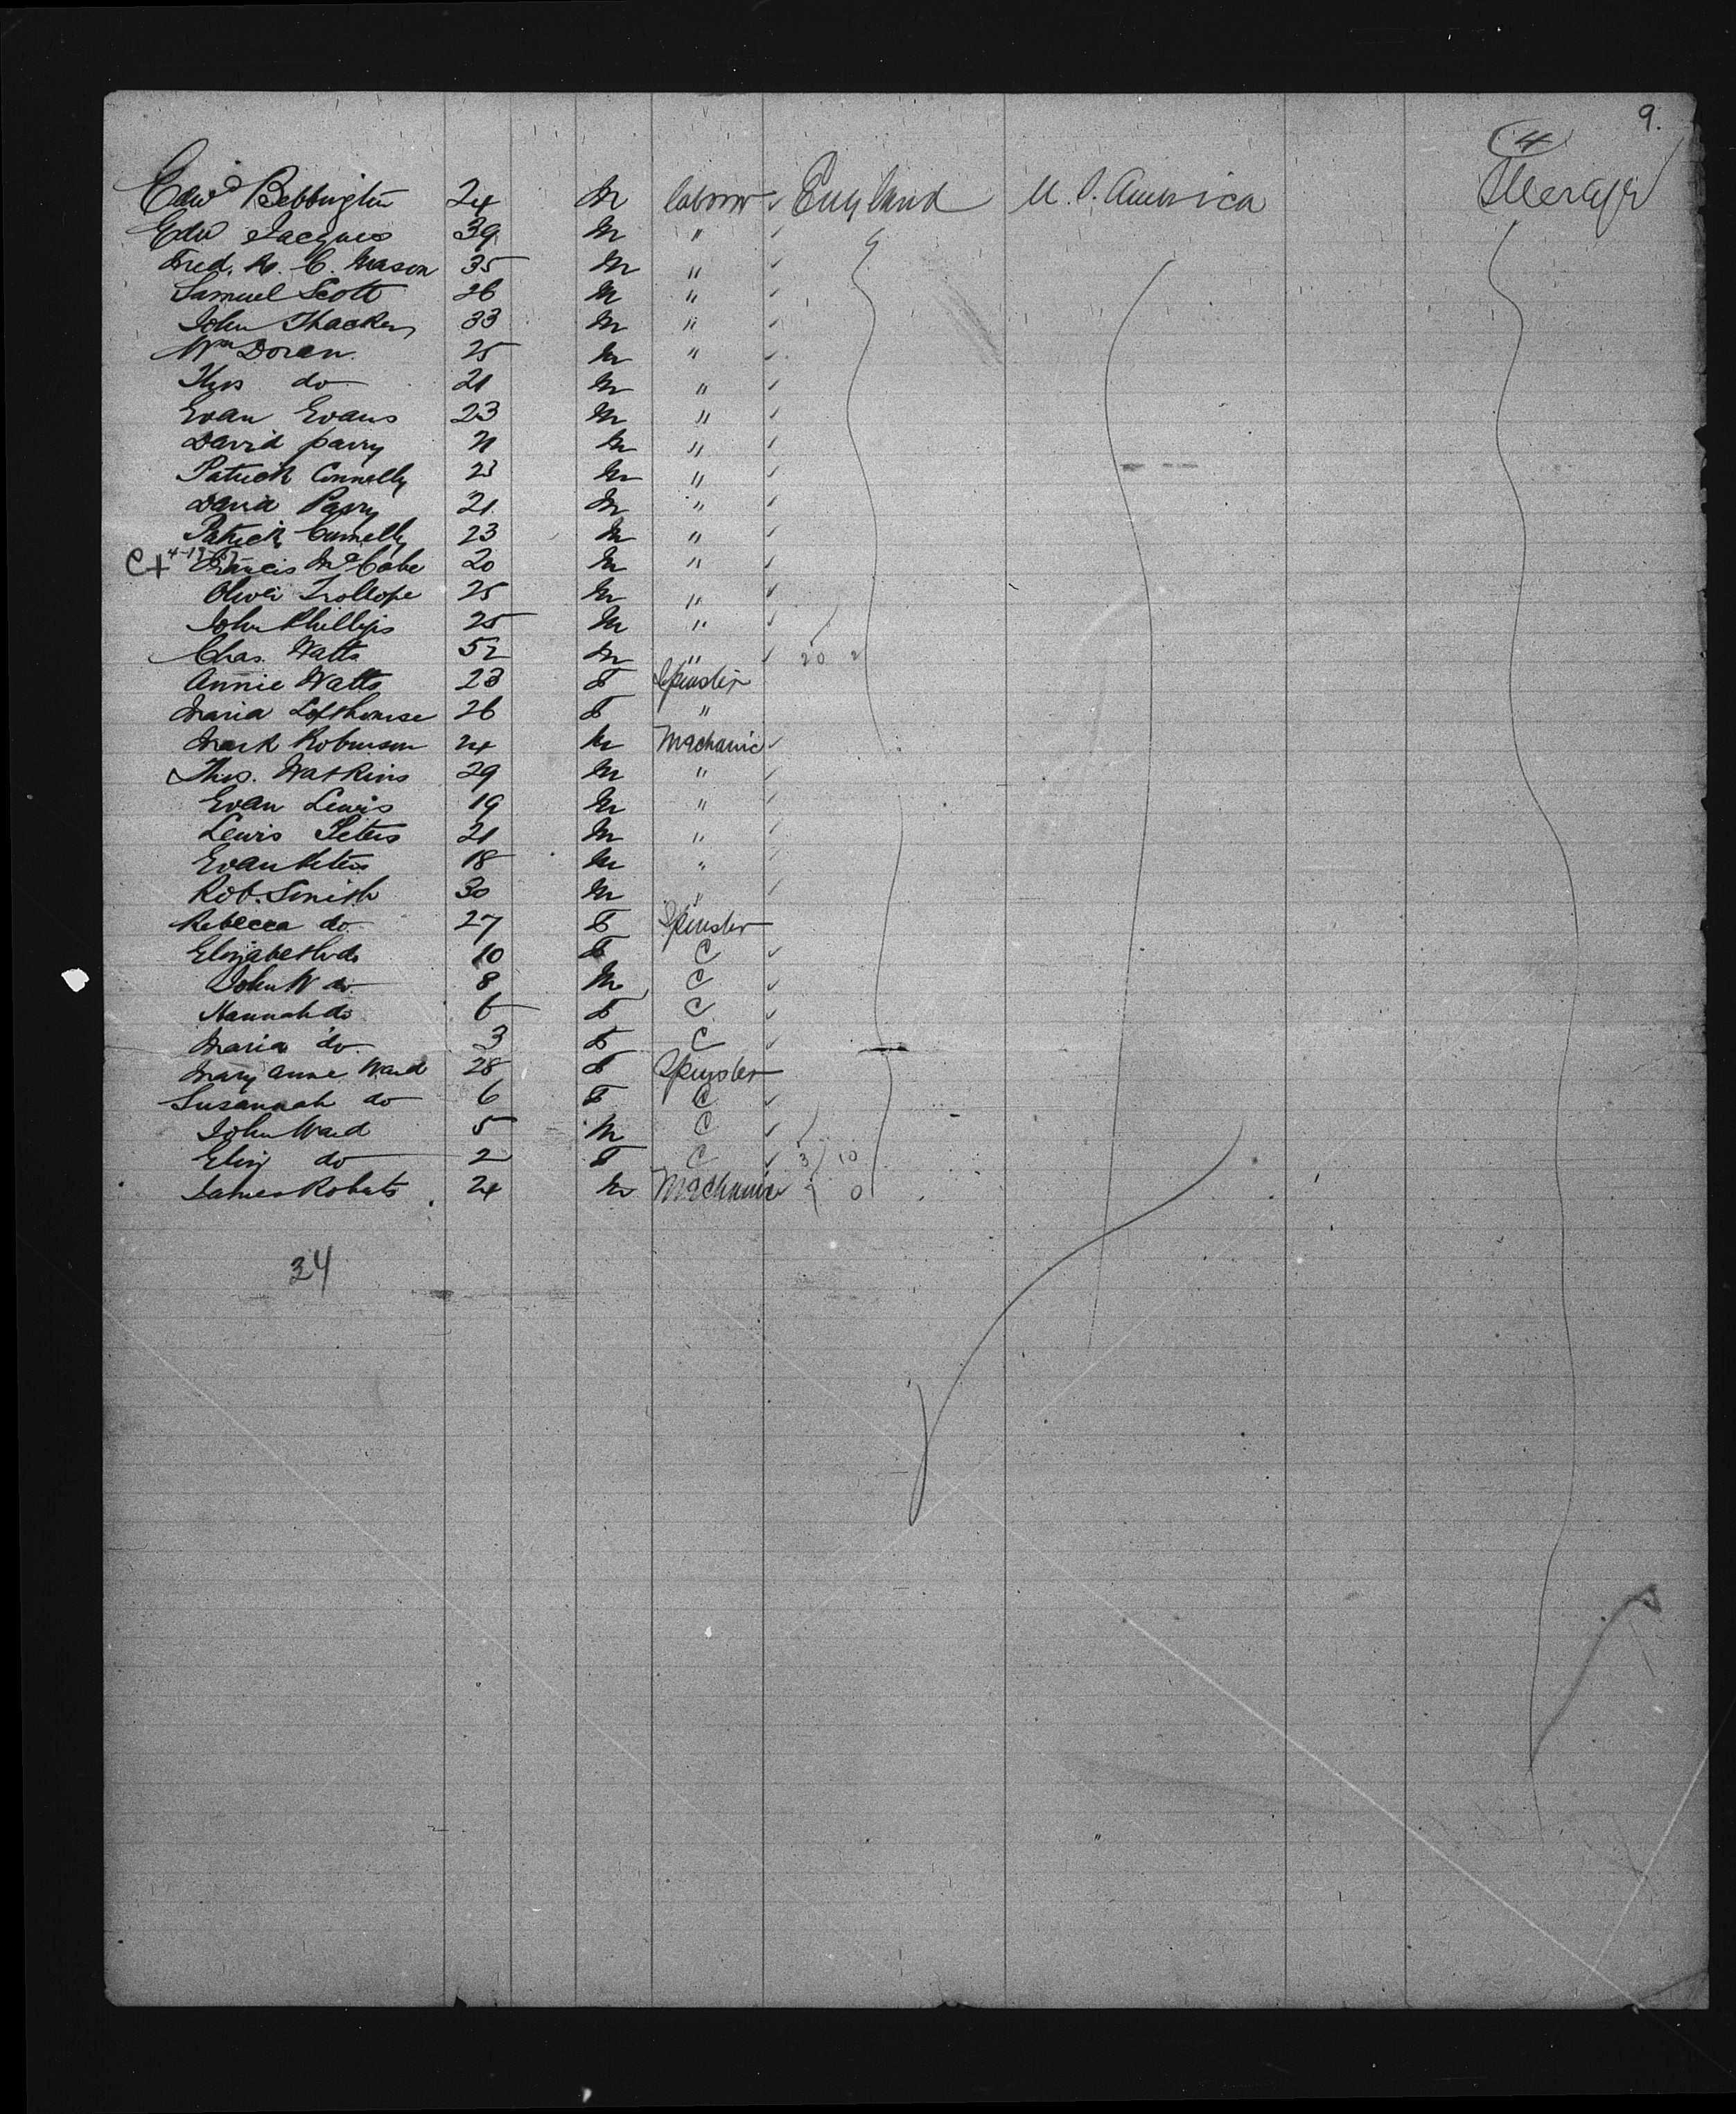 9.
4
Edwd Bebbington 24 M Labourer ✓ England U. S. America Steerage
Edw Jacques 39 M " ✓
Fred. W. C. Mason 35 M " ✓
Samuel Scott 26 M " ✓
John Thackery 33 M " ✓
Wm Doran 25 M " ✓
Thos do 21 M " ✓
Evan Evans 23 M " ✓
David Parry 21 M " ✓
Patrick Connelly 23 M " ✓
David Parry 21 M " ✓
Patrick Connelly 23 M " ✓
C+ Francis McCabe 20 M " ✓
Oliver Trollope 25 M " ✓
John Phillips 25 M " ✓
Chas. Watts 52 M " ✓ 20 2
Annie Watts 23 F Spinster
Maria Lofthouse 26 F "
Mark Robinson 24 M Mechanic ✓
Thos. Watkins 29 M " ✓
Evan Lewis 19 M " ✓
Lewis Peters 21 M " ✓
Evan Peters 18 M " ✓
Rob. Smith 30 M " ✓
Rebecca do 27 F Spinster
Elizabeth do 10 F C ✓
John W do 8 M C ✓
Hannah do 6 F C ✓
Maria do 3 F C ✓
Mary Anne Ward 28 F Spinster
Susannah do 6 F C ✓
John Ward 5 M C ✓
Eliz do 2 F C ✓ 3 10
James Roberts 24 M Mechanic 0
34